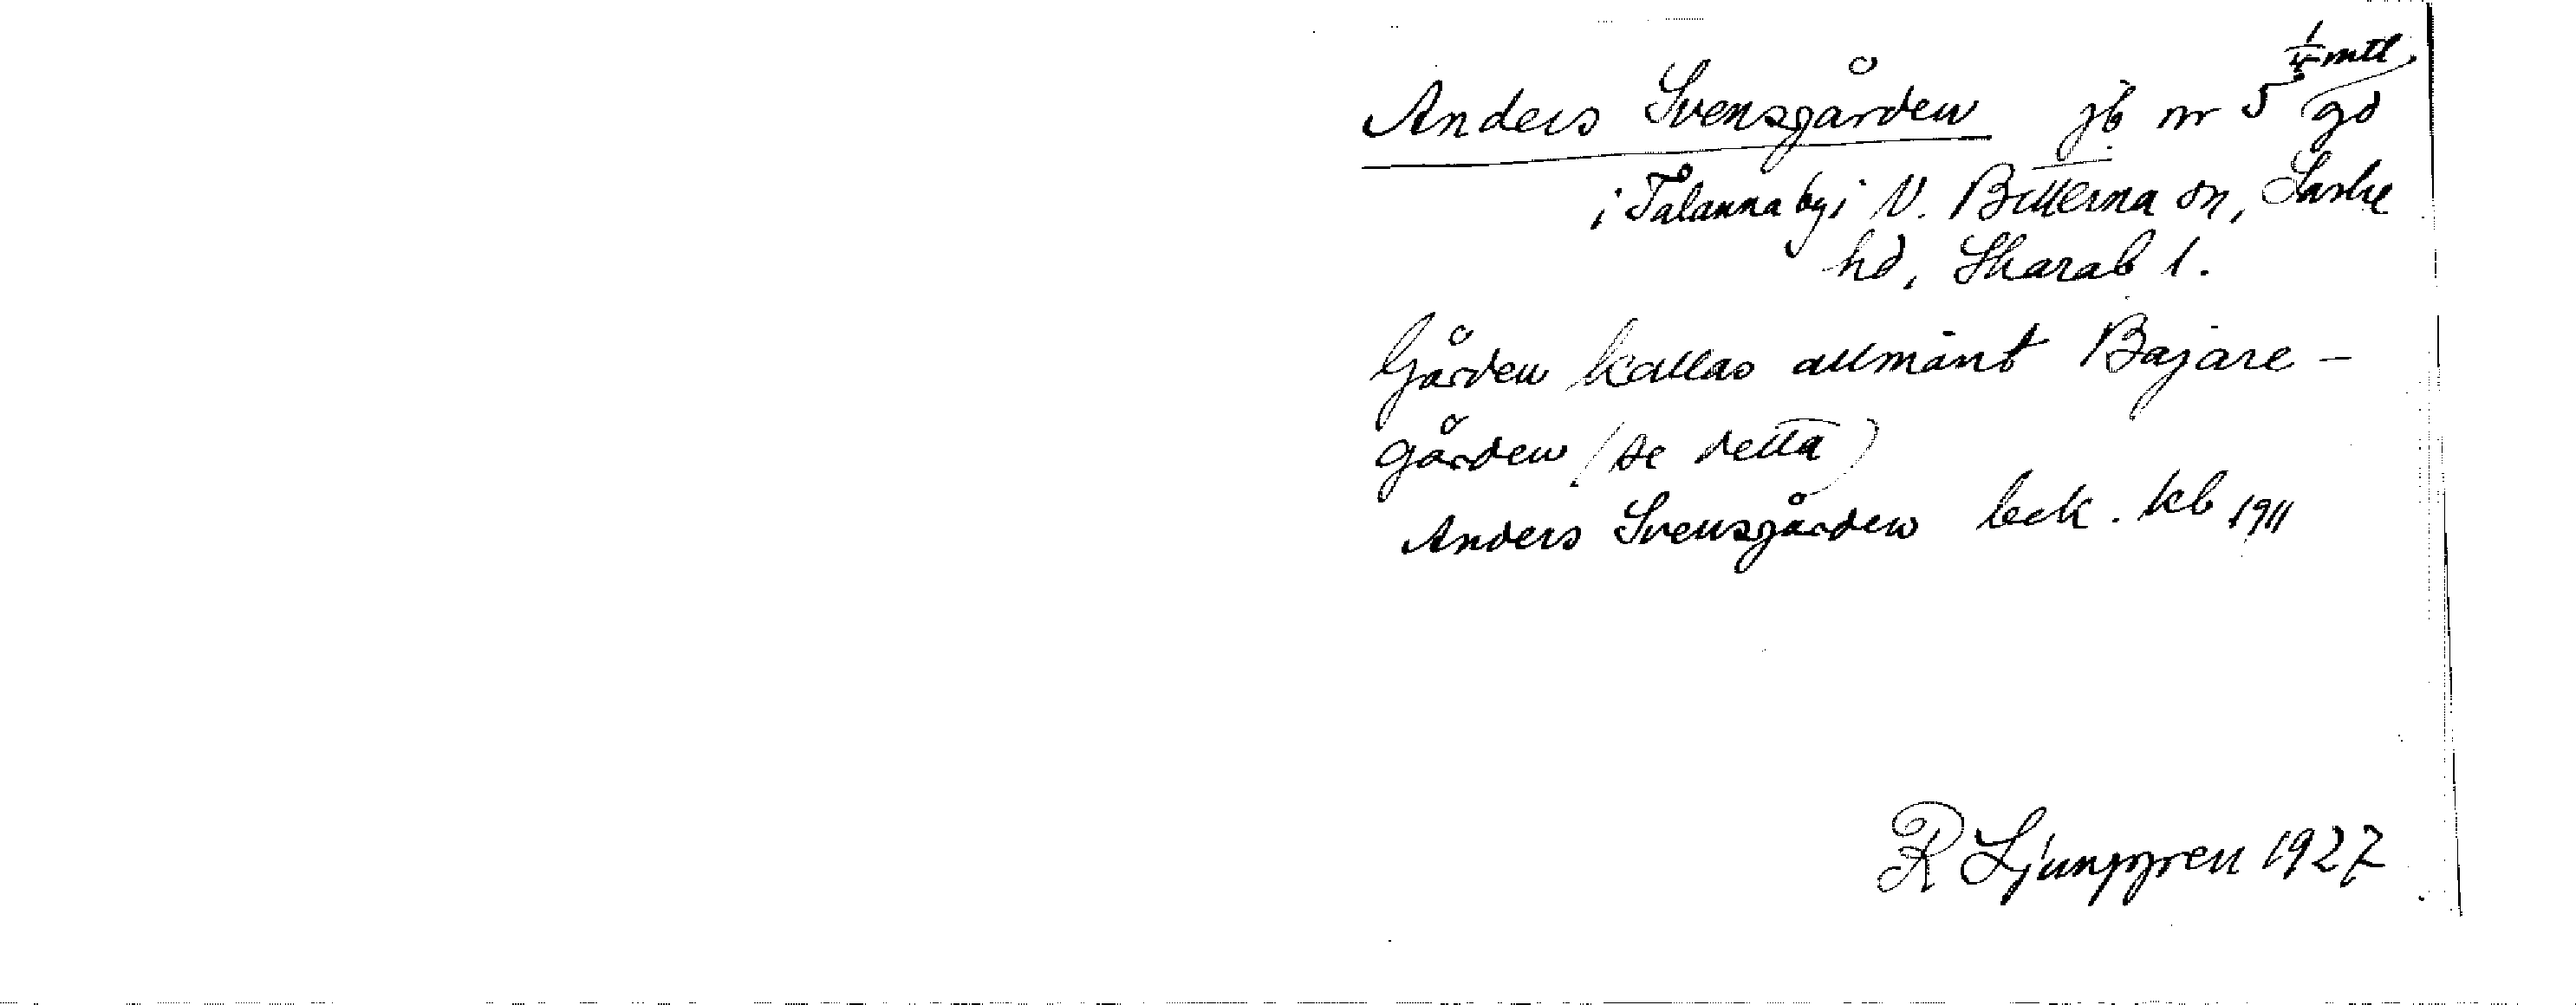 Anders Svensgården jb nr 5 1/4 mtl gd
i Tålanna by i N. Bitterna sn, Laske
hd, Skarab l.
Gården kallas allmänt Bajare-
gården (se detta)
Anders Svensgården beck. kb 1911
R Ljunggren 1927